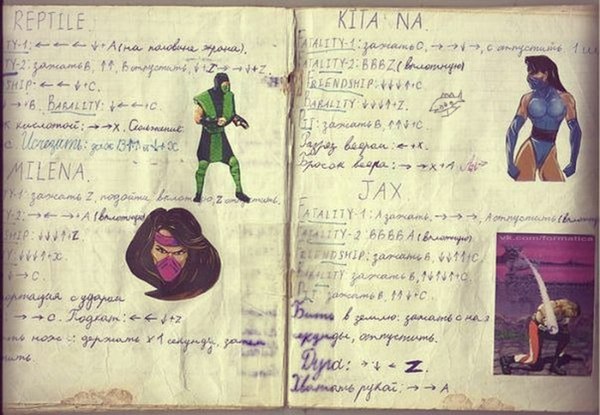 REPTILE.
TY-1: ← ← ← ↓ + A (на половине экрана).
TY-2: зажать B, ↑↑, B отпустить, ↓+Z → → ↓+Z.
SHIP: ← ← ↓ C.
→ → B. BABALITY: ↓ ← ← C.
кислотой: → → X. Скольжение:
C. Исчезать: заж. B ↑↑ ↓ + X
MILENA.
TY-1: зажать Z, подойти вплотную, Z отпустить.
TY-2: → ← → A (вплотную)
SHIP: ↓↓↓↑ Z.
Y: ↓↓↓↑ X.
↓ → C.
ортация с ударом
→ → C. Подкат: ← ← ↓ + Z
ножи: держать X 1 секунду, затем
тить.
KITANA.
FATALITY-1: зажать C, → → ↓ →, C отпустить. 1 ш
FATALITY-2: BBBZ (вплотную)
FRIENDSHIP:
BABALITY ↓↓↓↑ Z.
PIT: зажать B, ↑↑↓ C.
веером: ← + X.
Бросок веера: → → X + A
JAX
FATALITY-1: A зажать, → → →, A отпустить (вплотну
FATALITY-2 BBBBA (вплотную)
FRIENDSHIP: зажать B, ↓↓↑↑ C.
BABALITY зажать B, ↓↑↓↑ C.
PIT зажать B, ↑↑↓ C.
Бить в землю: зажать C на 2
секунды, отпустить.
Дуга: → ↓ ← Z.
Хватать рукой: → → A
vk.com/formatica